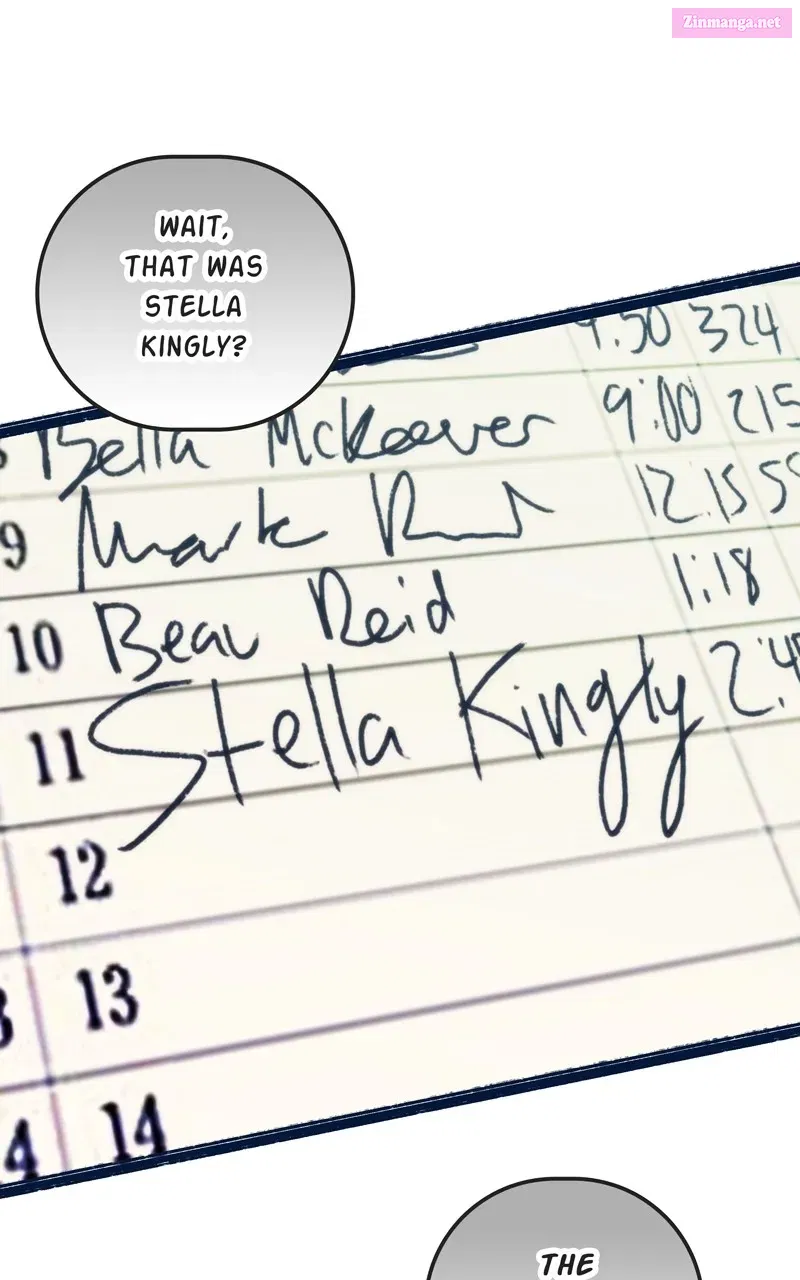 Zinmanga.net
WAIT,
THAT WAS
STELLA
KINGLY?
9:50 324
Bella McKeever 9:00 215
9 Mark 12:15
10 Beau Reid 1:18
11 Stella Kingly 2:4
12
13
14
THE